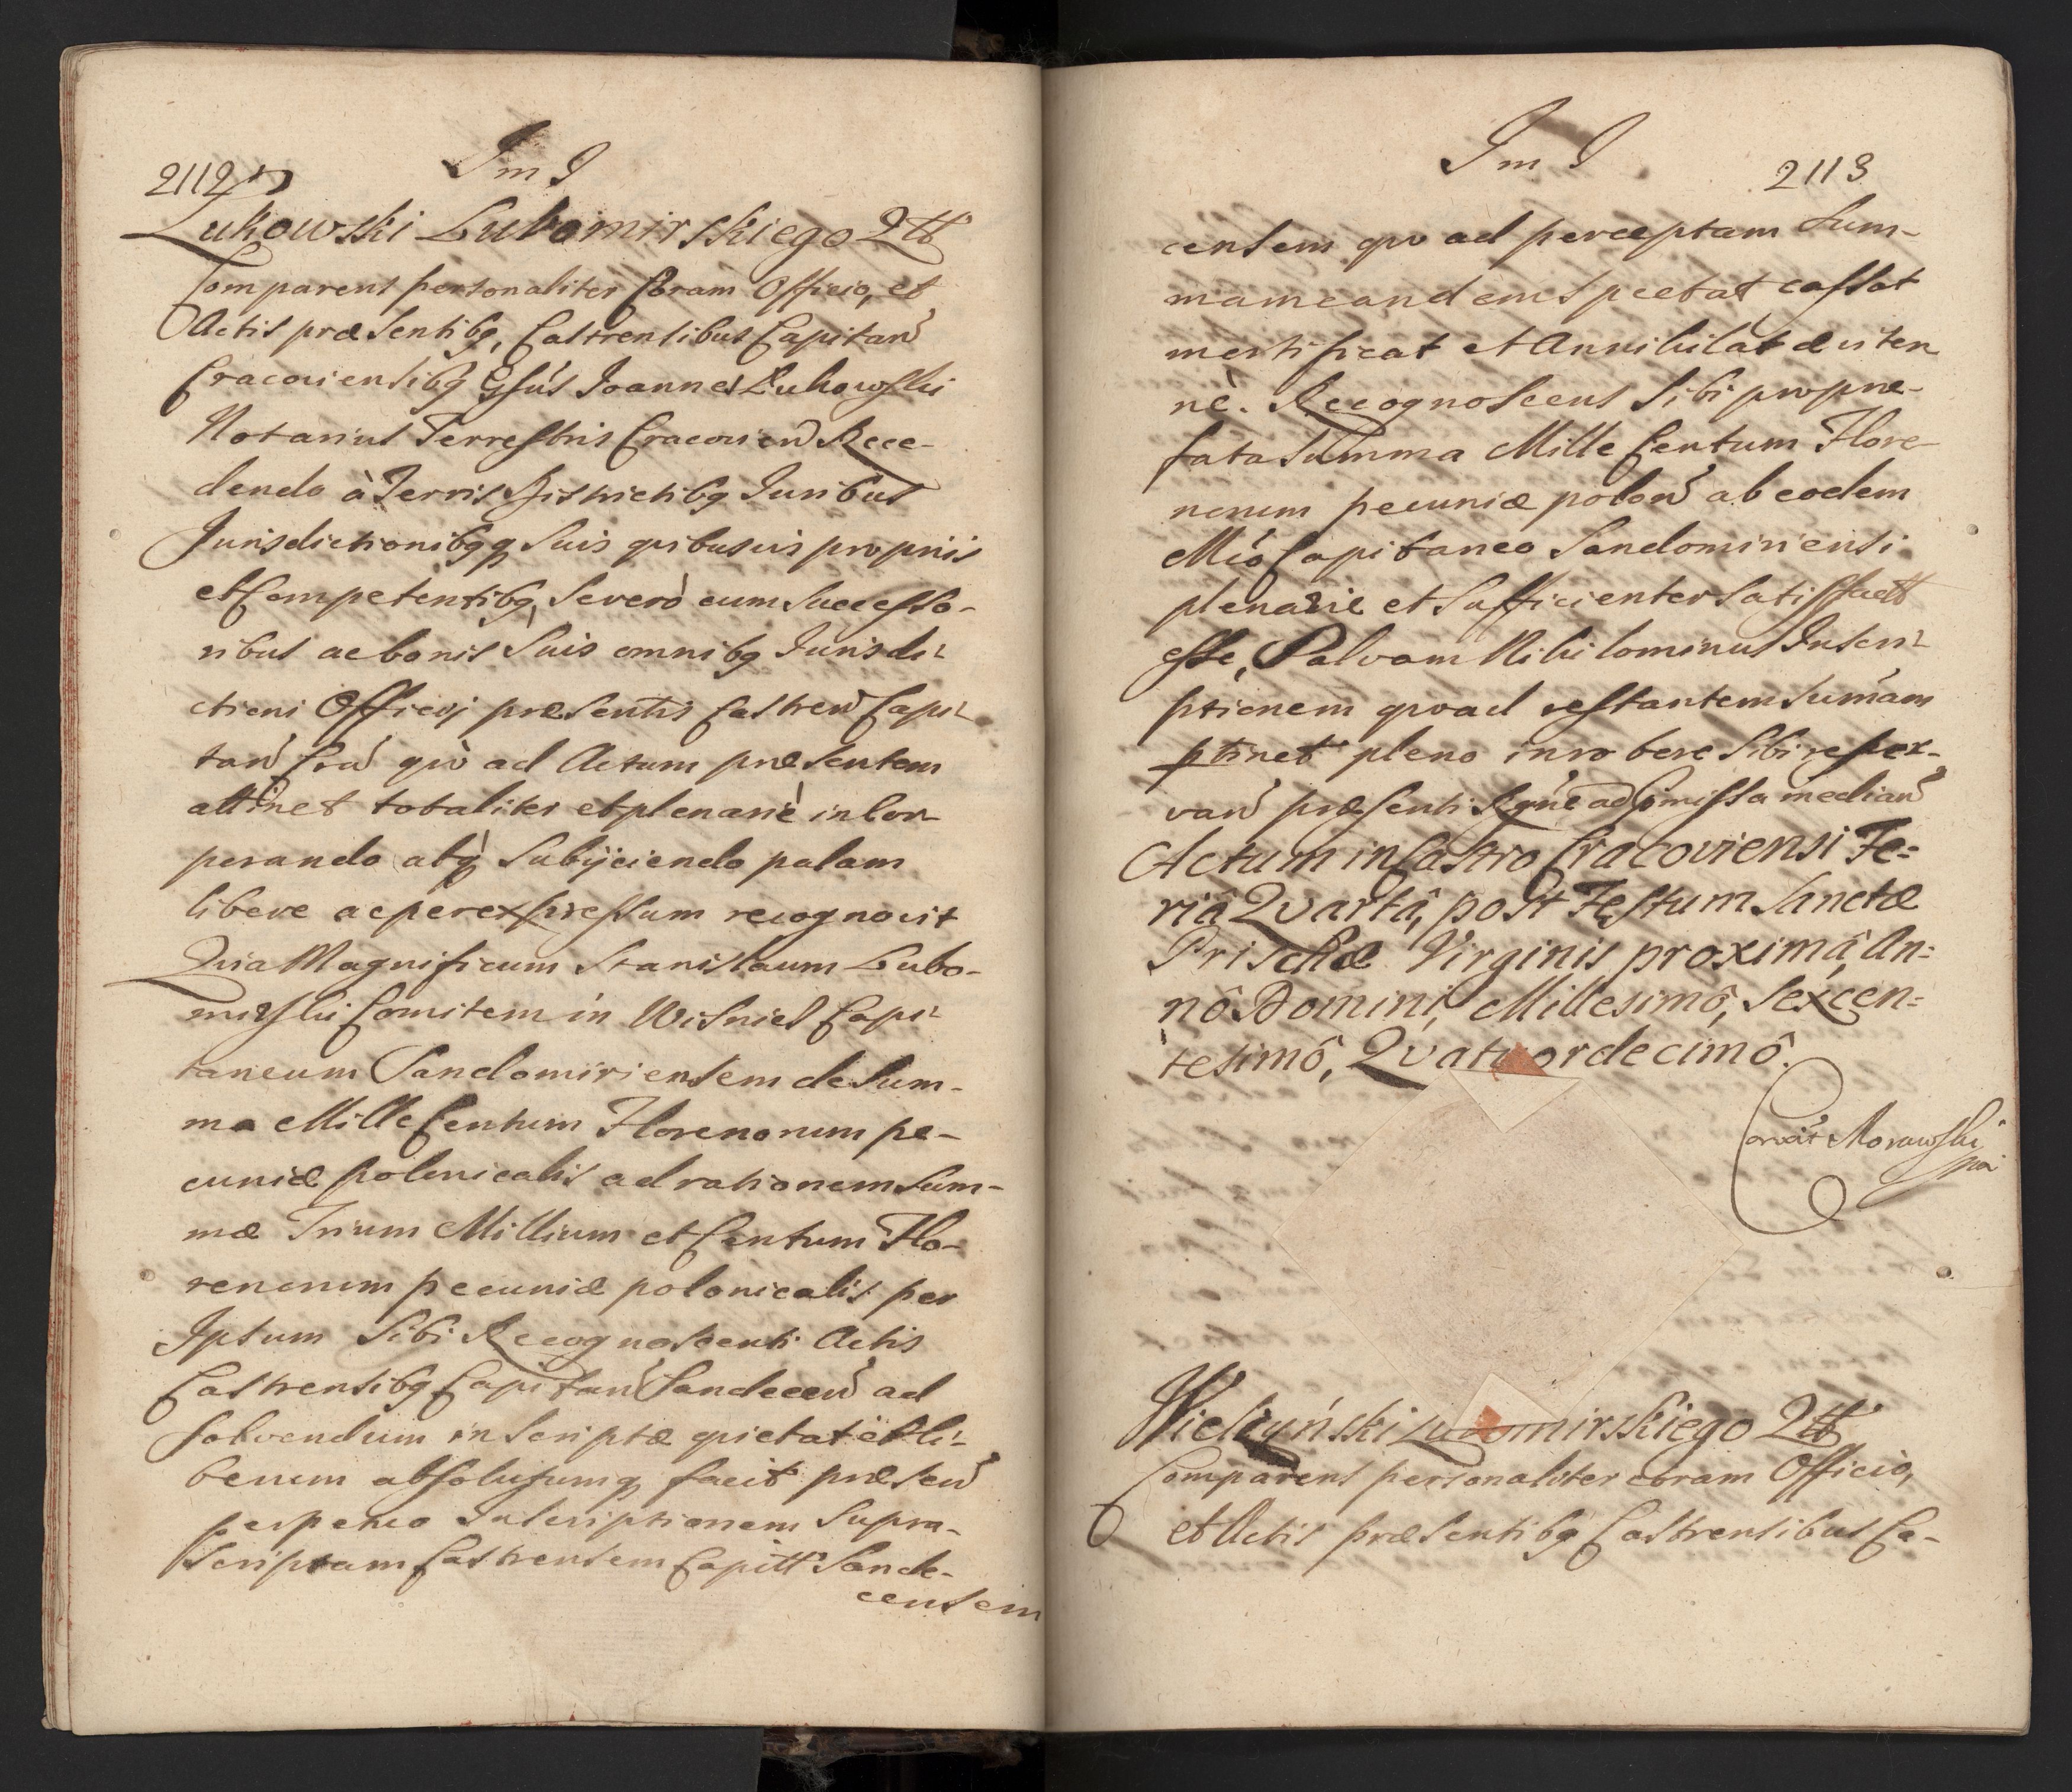 2112
I m I
Lukowski Lubomirskiego Qtt
Comparens personaliter Coram Officio, et
Actis præsentibq, Castrensibus Capitan
Cracoviensibq Gsus Joannes Lukowski
Notarius Terrestris Cracovien Rece-
dendo à Terris Districtibq Juribus
Jurisdictionibqq Suis qvibusvis proprijs
et Competentibq, Severò cum Successo-
ribus ac bonis Suis omnibq Jurisdi-
ctioni Officij præsentis Castren Capi-
tan Cra qvò ad Actum præsentem
attinet totaliter et plenariè incor-
porando atq Subijciendo palam
libere ac per expressum recognovit
Qvia Magnificum Stanislaum Lubo-
mirski Comitem in Wisnics Capi-
taneum Sandomiriensem de Sum-
ma Mille Centum Florenorum pe-
cuniæ polonicalis ad rationem Sum-
mæ Trium Millium et Centum Flo-
renorum pecuniæ polonicalis per
Ipsum Sibi Recognoscenti Actis
Castrensibq Capitan Sandecen ad
Solvendum inscriptæ qvietat et li-
berum absolutumq facit præsen
perpetuo Inscriptionem Supra-
scriptam Castrensem Capitt Sande-
censem
I m I
2113
censem qvo ad perceptam Sum-
mam eandem Spectat cassat
mortificat et Annihilat æviter-
nè. Recognoscens Sibi pro præ-
fata Summa Mille Centum Flore-
norum pecuniæ polon ab eodem
Mco Capitaneo Sandomiriensi
plenarie et Sufficienter Satisfactt
esse, Salvam Nihilominus Inscri-
ptionem qvoad restantem Summam
ptinet pleno in robore Sibi reser-
van præsenti Rgne ad pmissa median
Actum in Castro Cracoviensi Fe-
riâ Qvartâ, post Festum Sanctæ
Priscæ Virginis proximâ, An-
nô Domini, Millesimô, Sexcen-
tesimô, Qvatuordecimô.
Morawski
mp
Wielczyński Lubomirskiego Qtt
Comparens personaliter coram Officio,
et Actis præsentibq Castrensibus Ca-